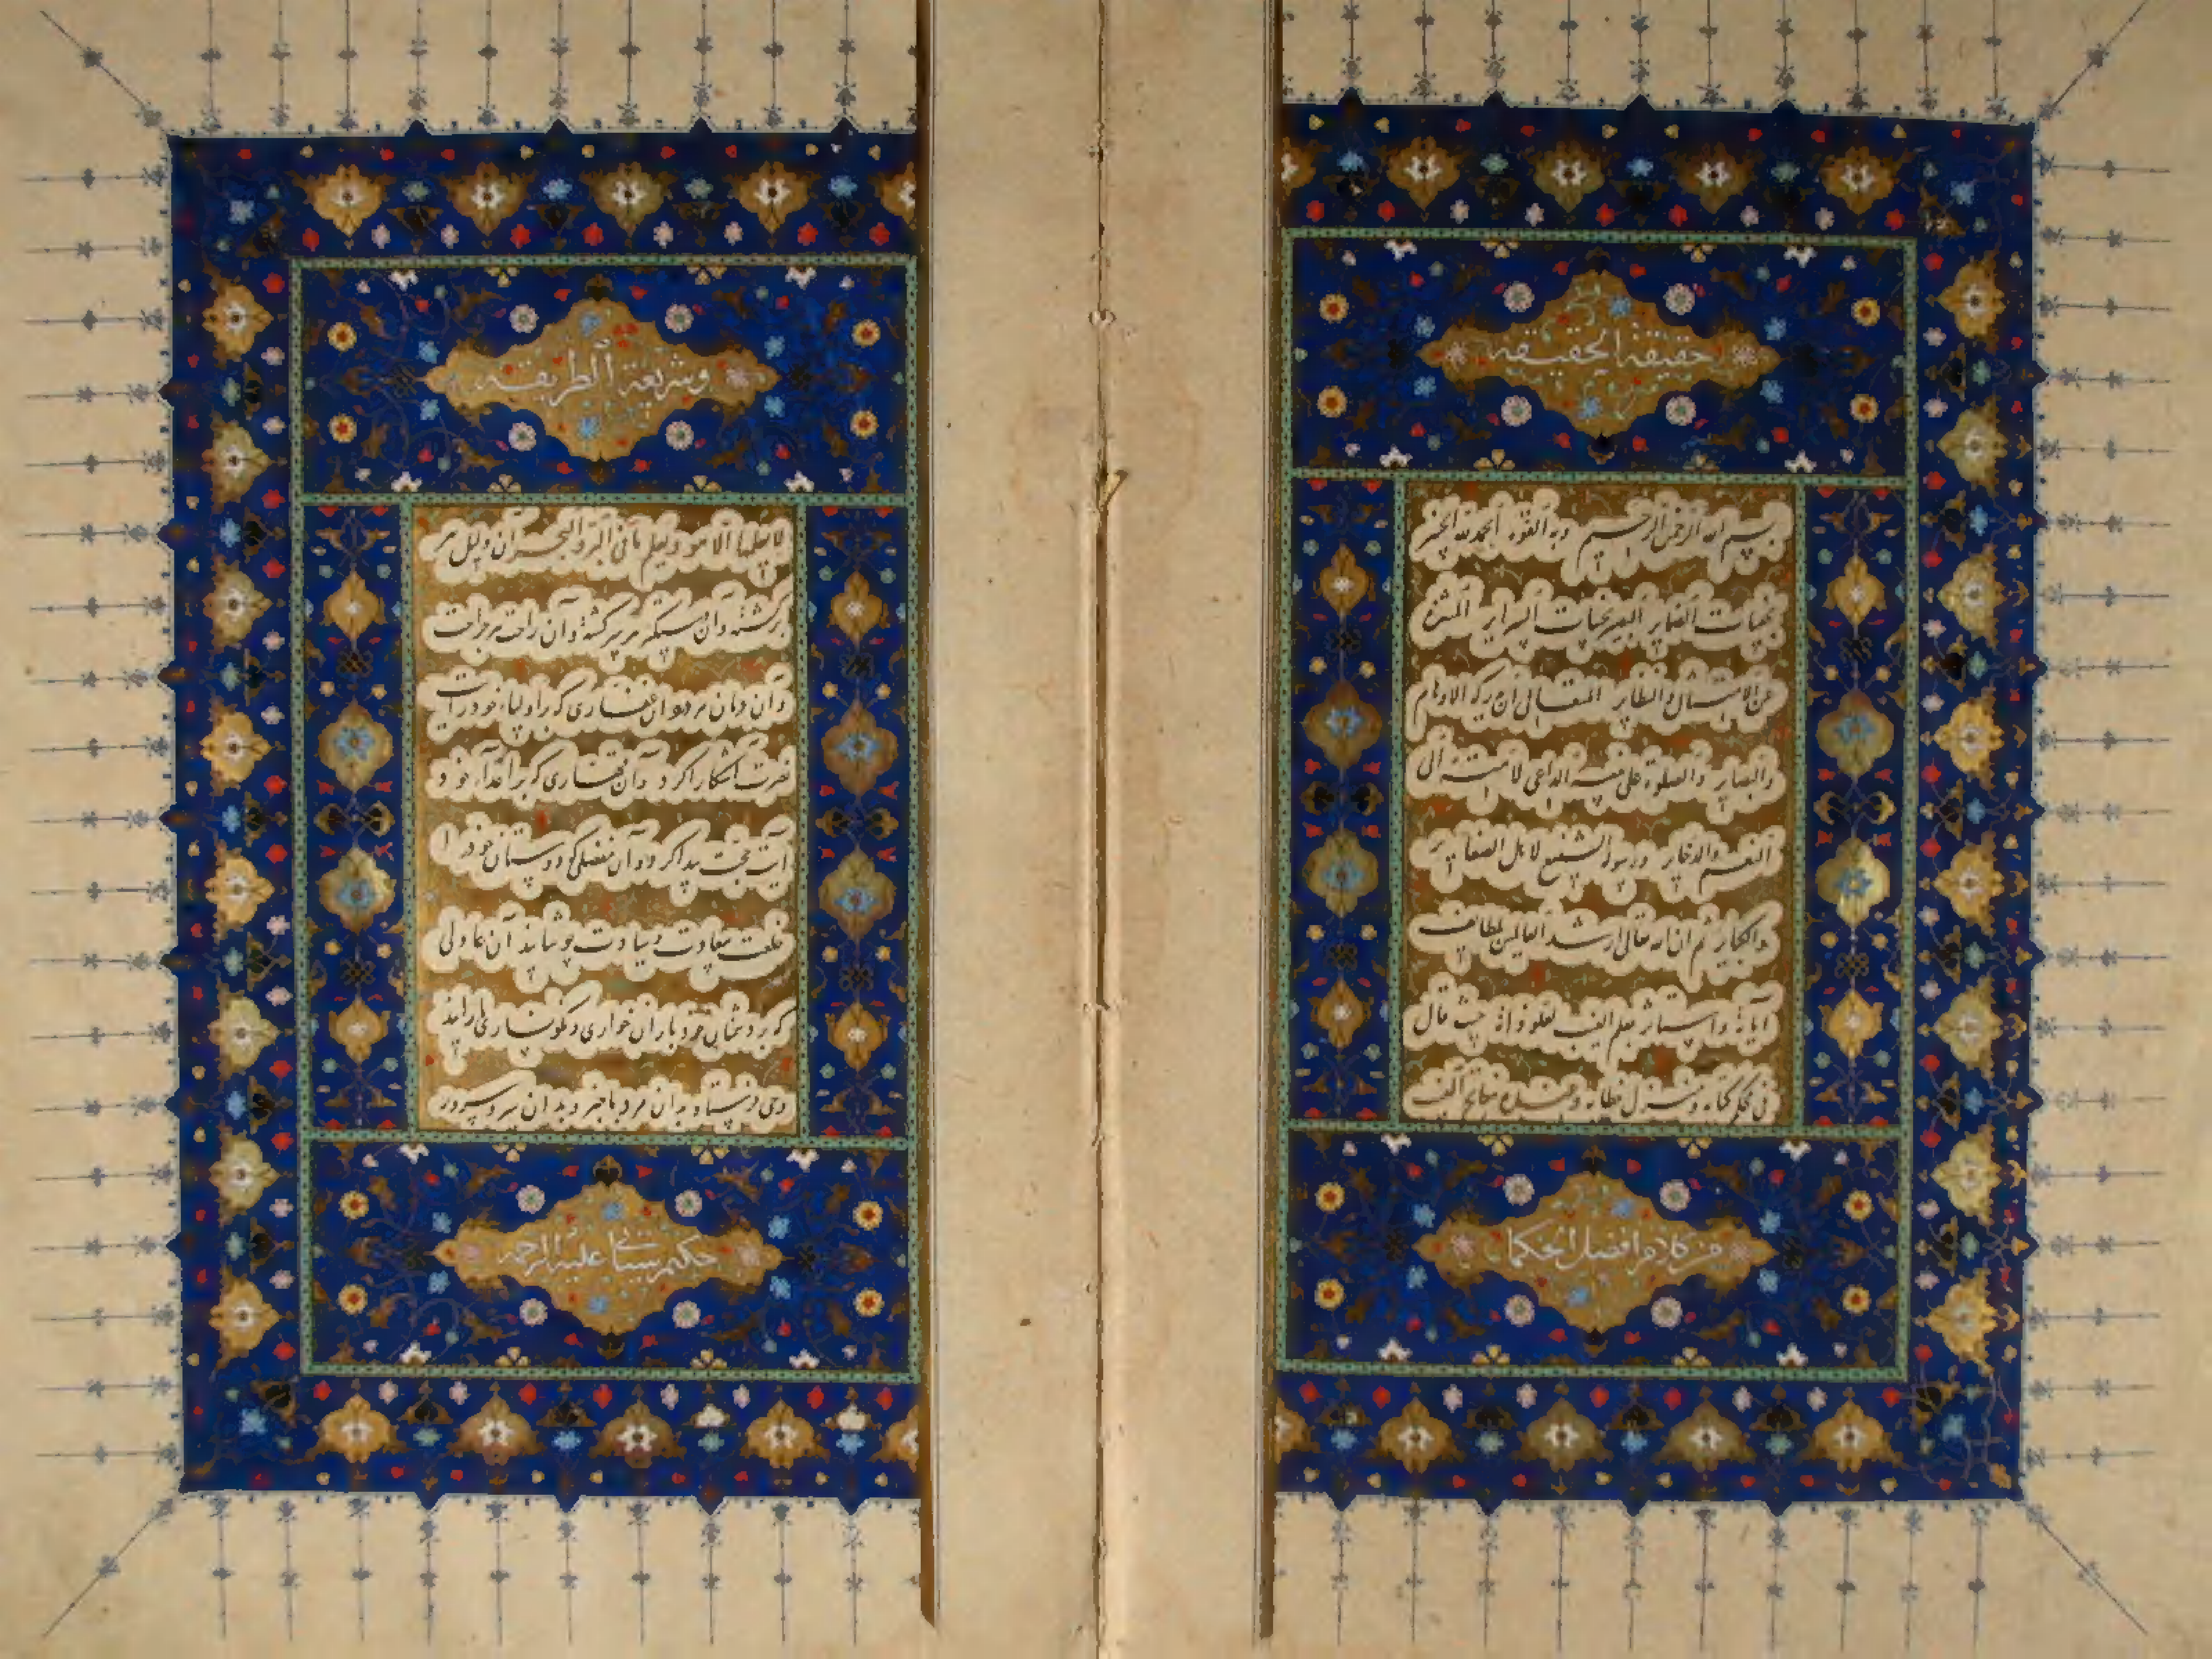 حقیقة الحقیقة
بسم الله الرحمن الرحیم وبه القوة الحمد لله الخبیر
بخفیات الضمایر البصیر بخبیات السرایر المنزه
عن الامثال والنظایر المتعالی ان یدرکه الاوهام
والبصایر والصلوة علی نبیه الداعی لامته الی
النعیم والذخایر ورسوله الشفیع لاهل الصغایر
والکبایر ثم ان الله تعالی ارشد العالمین بلطایف
آیاته واستأثر بعلم الغیب لعلو ذاته حیث قال
فی محکم کتابه ومنزل خطابه وعنده مفاتح الغیب
من کلام افضل الحکما
وشریعة الطریقة
لا یعلمها الا هو ویعلم ما فی البر والبحر آن دلیل هر
برگشته و آن دستگیر هر سرگشته و آن راحت هر جراحت
و آن درمان هر درد آن غفاری که بر اولیاء خود رایت
نصرت آشکارا کرد و آن قهاری که بر اعداء خود
آیت محنت پیدا کرد و آن مفضلی که دوستان خود را
خلعت سعادت و سیادت پوشانید آن عادلی
که بر دشمنان خود باران خواری و نگونساری بارانید
وحی فرستاد بدان مرد با خبر و بدان سرو سرور
حکیم سنایی علیه الرحمه